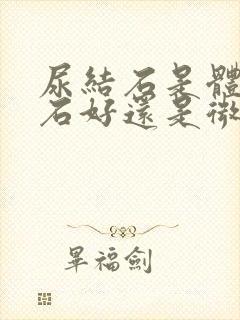 尿結石是體
石好還是微
畢福劍